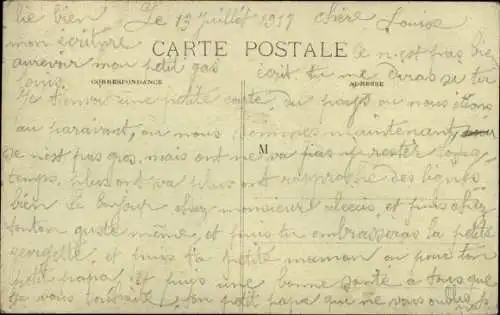 lie bien Le 13 juillet 1917 chère Louise
mon écriture ce n'est pas
CARTE POSTALE
aurevoir mon petit gas écrit tu me diras si tu
CORRESPONDANCE ADRESSE
Louis
Je t'envoi une petite carte, du pays ou nous étions
au paravant, ou nous sommes maintenant
M
ce n'est pas gros, mais ont ne va pas y rester long
temps, plus ont va plus ont rapproche des lignes
bien le bonjour chez monsieur et puis chez
tonton guste même, et puis tu embrasseras la petite
georgette, et puis ta petite maman ou pour ton
petit papa, et puis une bonne santé à tous que
je vous souhaite, ton petit papa qui ne vous oublie
pas